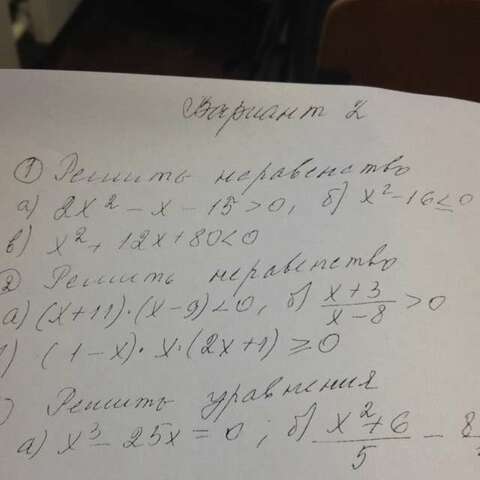 Вариант 2
① Решить неравенство
а) 2x² - x - 15 > 0, б) x² - 16 ≤ 0
в) x² + 12x + 80 < 0
2 Решить неравенство
а) (x+11)·(x-9) < 0, б) \frac{x+3}{x-8} > 0
) (1-x)·x·(2x+1) ≥ 0
) Решить уравнения
а) x³ - 25x = 0; б) \frac{x²+6}{5} - 8